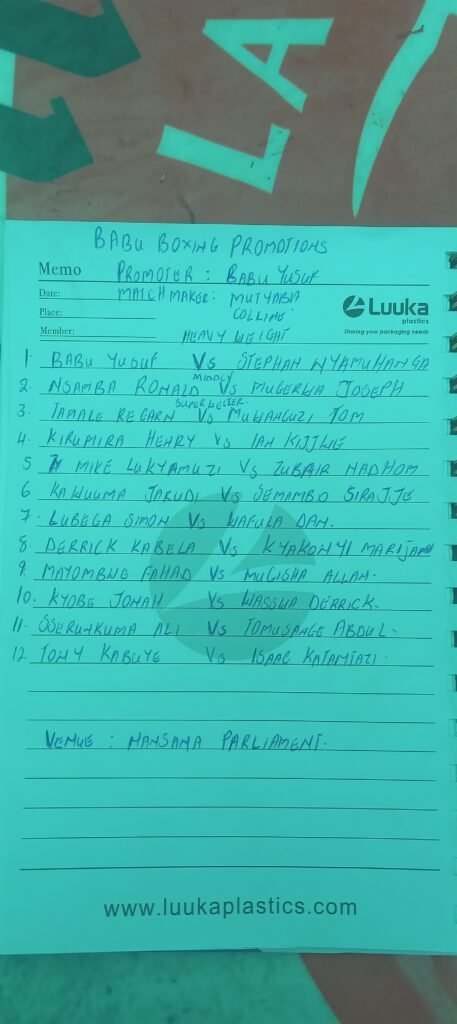 LA
BABU BOXING PROMOTIONS
Memo PROMOTER : BABU YUSUF
Date: MATCHMAKER: MUTYABA
Place: COLLINE
Luuka
plastics
Sharing your packaging needs
Member:
HEAVY WEIGHT
1. BABU YUSUF Vs STEPHAN NYAMUHANGA
MIDDLE
2. NSAMBA RONALD Vs MUGERWA JOSEPH
SUPER WELTER.
3. TAMALE REGARN Vs MUWANGUZI TOM
4. KIRUMIRA HENRY Vs IAN KIJJWE
5 MIKE LUKYAMUZI Vs ZUBAIR NADHOM
6 KAWUUMA JARUDI Vs SEMAMBO SIRAJJE
7. LUBEGA SIMON Vs WAFULA DAN.
8. DERRICK KABELA Vs KYAKONYI
9. MAYOMBWE FAHAD Vs MUGISHA ALLAN.
10. KYOBE JONAH Vs WASSWA DERRICK.
11. SSERUNKUMA ALI Vs TOMUSANGE ABDUL.
12. TONY KABUYE Vs ISAAC
VENUE : NANSANA PARLIAMENT.
www.luukaplastics.com